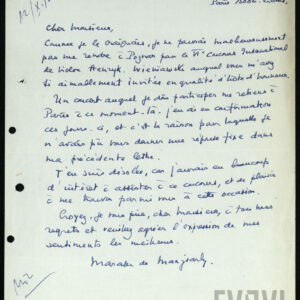 Cher Monsieur,
Comme je le craignais, je ne pourrai malheureusement
pas me rendre à Poznan pour le VIe Concours International
de Violon Henryk Wieniawski auquel vous m'avez
si aimablement invitée en qualité d'hôte d'honneur.
Un concert auquel je dois participer me retient à
Paris à ce moment-là. J'en ai eu confirmation
ces jours-ci, et c'est la raison pour laquelle je
n'avais pu vous donner une réponse fixe dans
ma précédente lettre.
J'en suis désolée, car j'aurais eu beaucoup
d'intérêt à assister à ce concours, et de plaisir
à me trouver parmi vous à cette occasion.
Croyez, je vous prie, cher Monsieur, à tous mes
regrets et veuillez agréer l'expression de mes
sentiments les meilleurs.
Marcelle de Manziarly